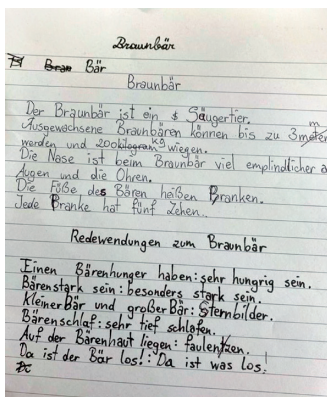 Braunbär
Bär
Braunbär
Der Braunbär ist ein Säugertier.
Ausgewachsene Braunbären können bis zu 3m
werden und 200 kg wiegen.
Die Nase ist beim Braunbär viel emplindlicher a
Augen und die Ohren.
Die Füße des Bären heißen Pranken.
Jede Pranke hat fünf Zehen.
Redewendungen zum Braunbär
Einen Bärenhunger haben: sehr hungrig sein.
Bärenstark sein: besonders stark sein.
Kleiner Bär und großer Bär: Sternbilder.
Bärenschlaf: sehr tief schlafen.
Auf der Bärenhaut liegen: faulenzen.
Da ist der Bär los!: Da ist was los!